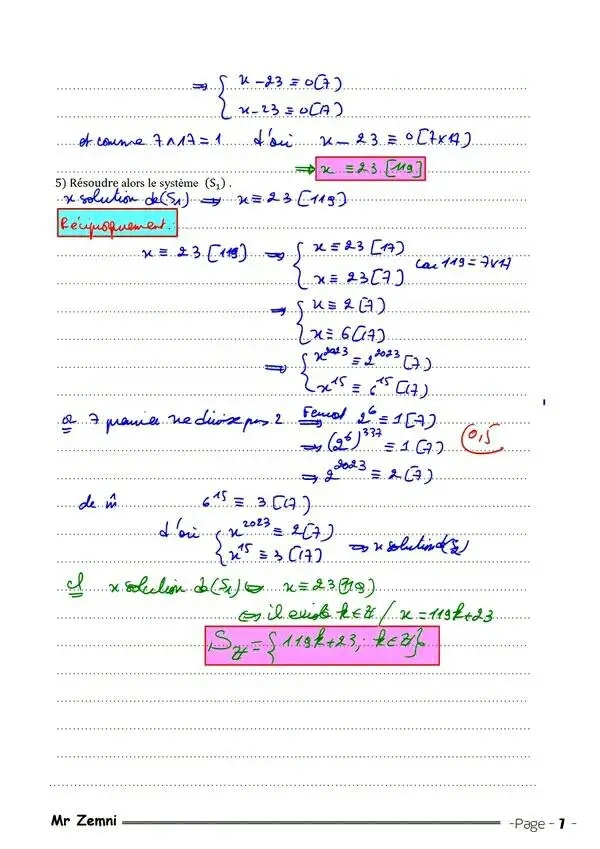 ⇒ { x - 23 ≡ 0 [7]
x - 23 ≡ 0 [17]
et comme 7 ∧ 17 = 1 d'où x - 23 ≡ 0 [7×17]
⇒ x ≡ 23 [119]
5) Résoudre alors le système (S₁) .
x solution de (S₁) ⇒ x ≡ 23 [119]
Réciproquement :
x ≡ 23 [119] ⇒ { x ≡ 23 [17]
x ≡ 23 [7] car 119 = 7×17
⇒ { x ≡ 2 [7]
x ≡ 6 [17]
⇒ { x²⁰²³ ≡ 2²⁰²³ [7]
x¹⁵ ≡ 6¹⁵ [17]
or 7 premier ne divise pas 2 Fermat ⇒ 2⁶ ≡ 1 [7]
⇒ (2⁶)³³⁷ ≡ 1 [7] 0,5
⇒ 2²⁰²³ ≡ 2 [7]
de m̂ 6¹⁵ ≡ 3 [17]
d'où { x²⁰²³ ≡ 2 [7]
x¹⁵ ≡ 3 [17] ⇒ x solution de
cl x solution de (S₁) ⇔ x ≡ 23 [119]
⇔ il existe k ∈ ℤ / x = 119k + 23
S_ℤ = { 119k + 23 ; k ∈ ℤ }
Mr Zemni -Page - 7 -